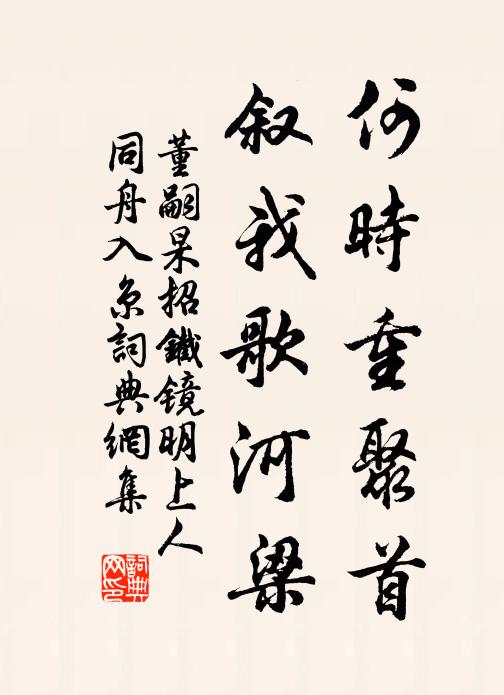 何時重聚首
叙我歌河梁
董嗣杲招鐵镜明上人
同舟入京詞典網集
詞典网印